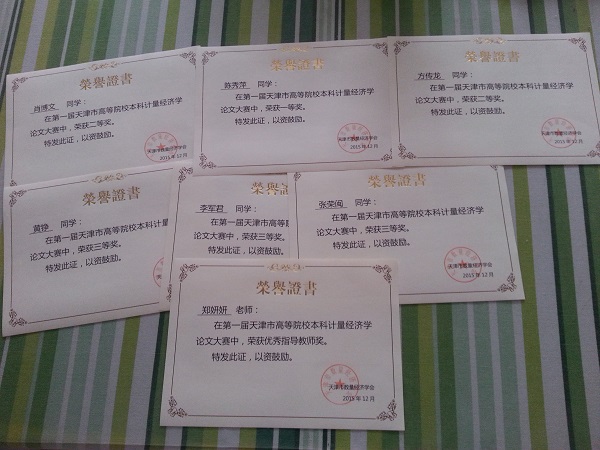 榮譽證書
肖博文 同学：
在第一届天津市高等院校本科计量经济学
论文大赛中，荣获二等奖。
特发此证，以资鼓励。
天津市数量经济学会
2015年12月
榮譽證書
陈秀萍 同学：
在第一届天津市高等院校本科计量经济学
论文大赛中，荣获一等奖。
特发此证，以资鼓励。
天津市数量经济学会
2015年12月
榮譽證書
方传龙 同学：
在第一届天津市高等院校本科计量经济学
论文大赛中，荣获二等奖。
特发此证，以资鼓励。
天津市数量经济学会
2015年12月
榮譽證書
黄铮 同学：
在第一届天津市高等
论文大赛中，荣获三等奖。
特发此证，以资鼓励。
榮譽證
李军君 同学：
在第一届天津市高等院
论文大赛中，荣获三等奖。
特发此证，以资鼓励。
榮譽證書
张荣闽 同学：
在第一届天津市高等院校本科计量经济学
论文大赛中，荣获三等奖。
特发此证，以资鼓励。
天津市数量经济学会
2015年12月
榮譽證書
郑妍妍 老师：
在第一届天津市高等院校本科计量经济学
论文大赛中，荣获优秀指导教师奖。
特发此证，以资鼓励。
天津市数量经济学会
2015年12月